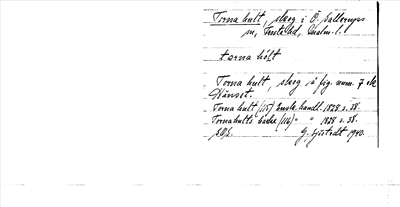 Torna hult, skog i Ö. Sallerups
sn, Frosta hd, Malm. l.
torna hölt
Torna hult, skog å fig. num. 7 ek
Hänset.
Torna hult (115) Enskr. handl. 1828 s. 38.
Tornahults backe (116) " " 1828 s. 38.
G. Sjöstedt 1940.